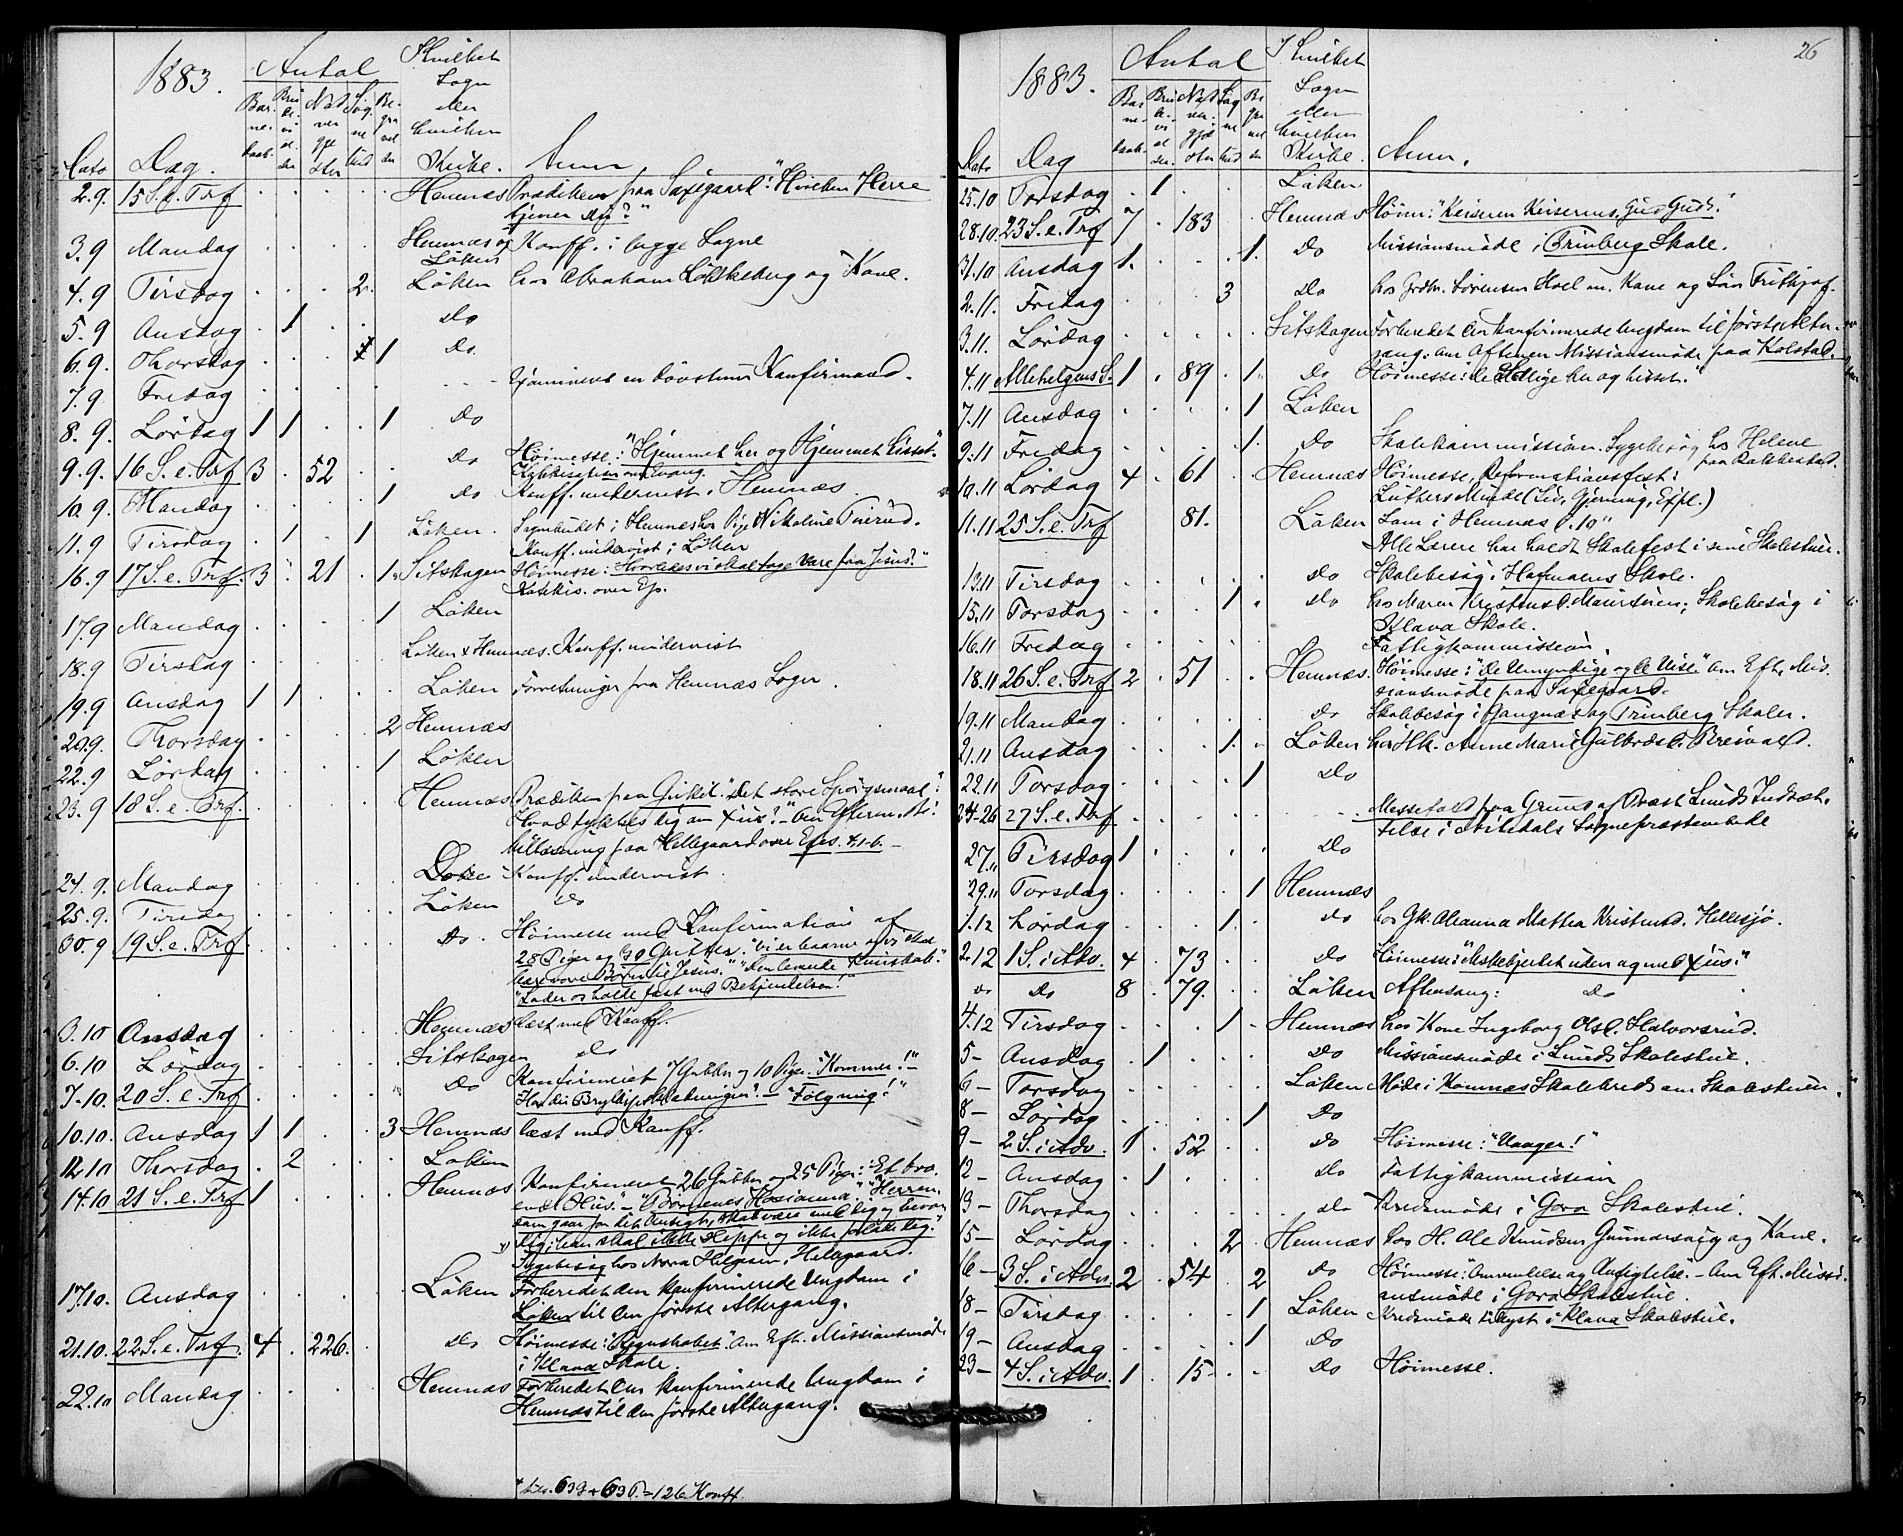 1883.
Antal
I hvilket
Sogn
eller
hvilken
Kirke.
Dato Dag. Anm
2.9. 15 S. e. Trf Hemnæs Prædiken paa Saxegaard: "Hvilken Herre
tjener Du?"
3.9 Mandag Hemnæs og Løken Konff. i begge Sogne
4.9 Tirsdag 2. Løken hos Abraham og Kone.
5.9 Onsdag 1 do
6.9. Thorsdag 1 Do.
7.9 Fredag en døvstum Konfirmand.
8.9. Lørdag 1 1 1 do
9.9. 16 S. e. Trf 3 52 do Høimesse: "Hjemmet her og Hjemmet hisset"
Katekisation over Evang.
10.9. Mandag 1 do Konff. undervist i Hemnæs.
11.9 Tirsdag 1 1 Løken. Sognebudet i Hemnæs hos Pige Nikoline
Konff. undervist i Løken
16.9 17 S. e. Trf. 3 21 1 Sitskogen Høimesse: Hvorledes vi skal tage Vare paa Jesus?"
Katekis. over Ep.
17.9 Mandag 1 Løken
18.9 Tirsdag Løken & Hemnæs. Konff. undervist
19.9 Onsdag 1 1 Løken Forretninger fra Hemnæs Sogn.
20.9. Thorsdag 2 Hemnæs
22.9 Lørdag 1 Løken
23.9 18 S. e. Trf. Hemnæs Prædiken paa "Det store Spørgsmaal:
Hvad tykkes dig om Xus?" Om Efterm.
paa Hellegaard over Efes. 4.1-6. –
24.9. Mandag Do Konff. undervist.
25.9. Tirsdag Løken do
30.9 19 S. e. Trf. Do. Høimesse med Konfirmation af
28 Piger og 30 Gutter.
"Lader os holde fast ved Bekjendelsen!"
3.10 Onsdag Hemnæs læst med Konff.
6.10 Lørdag Sitskogen do
7.10. 20 S. e. Trf Do Konfirmeret 7 Gutter og 10 Piger. "Kommer!" –
Har du Bryllupsklædningen? – "Følg mig!"
10.10. Onsdag 1 1 3 Hemnæs læst med Konff.
12.10 Thorsdag 2 Løken
14.10 21 S. e. Trf 1 Hemnæs Konfirmeret 26 Gutter og 25 Piger: "Et bro-
endt Hus." – "Børnenes Hosianna." "Herren,
som gaar for dit Ansigt, skal være med dig og bevare
dig, han skal ikke slippe og ikke forlade dig."
Sygebesøg hos Nora Helgesen, Hellegaard.
17.10. Onsdag Løken Forberedet den konfirmerede Ungdom i
Løken til den første Altergang.
21.10. 22 S. e. Trf. 4 226. do Høimesse: "Regnskabet". Om Eft. Missionsmøde
i Klava Skole.
22.10 Mandag Hemnæs Forberedet den konfirmerede Ungdom i
Hemnæs til den første Altergang.
63 G + 63 P. = 126 Konff.
26
1883.
Antal
I hvilket
Sogn
eller
hvilken
Kirke.
Dato Dag Anm.
25.10 Torsdag 1 Løken
28.10. 23 S. e. Trf 7 183 Hemnæs Høim: "Keiseren Keiserens, Gud Guds."
31.10 Onsdag 1. 1. Do Missionsmøde i Trinberg Skole.
2.11. Fredag 3 Do hos Grdbr. Sørensen Hoel m. Kone og Søn Frithjof.
3.11. Lørdag Sitskogen Forberedet den konfirmerede Ungdom til første Alter-
gang. Om Aftenen Missionsmøde paa Kolstad.
4.11 Allehelgens S. 1 89 1 do Høimesse: "De Salige her og hisset."
7.11 Onsdag 1 Løken
9.11 Fredag 1. Do Skolekommission. Sygebesøg hos Helene
paa Rakkestad.
10.11 Lørdag 4 61 Hemnæs Høimesse, Reformationsfest:
Luthers Minde (Liv, Gjerning, Expl.)
11.11 25 S. e. Trf 81. Løken Som i Hemnæs d. 10"
Alle Lærere har holdt Skolefest i sine Skolestuer.
13.11 Tirsdag do Skolebesøg i Hofmoens Skole.
15.11 Torsdag 1 do hos Maren Skolebesøg i
Klava Skole.
16.11 Fredag Fattigkommission.
18.11 26 S. e. Trf 2 51 Hemnæs Høimesse: "De Umyndige og de Vise." Om Eft. Mis-
sionsmøde paa Saxegaard.
19.11 Mandag do Skolebesøg i Gangnæs og Trinberg Skoler.
21.11 Onsdag 1. Løken hos Anne Marie
22.11 Torsdag 1 do
24-26 27 S. e. Trf Messefald paa Grund af Præst Lunds Indsæt-
telse i Nitedals Sognepræstembede
27" Tirsdag 1 do
29.11 Torsdag 1 Hemnæs
1.12 Lørdag 1. do hos Gk. Oleanna Mathea Kristensd. Hellesjø.
2.12 1 S. i Adv. 4 73 do Høimesse: "Menneskehjertet uden og med Xus."
do do 8 79. Løken Aftensang: do
4.12 Tirsdag 1 Hemnæs hos Kone Ingeborg Olsd. Halvorsrud.
5- Onsdag 1 do Missionsmøde i Lunds Skolestue.
6- Torsdag Løken Møde i Komnæs Skolekreds om Skolestuen.
8- Lørdag 1 do
9- 2 S. i Adv. 1 52 do Høimesse: "Vaager!"
12- Onsdag 1 do Fattigkommission
13- Thorsdag do Kredsmøde i Gora Skolestue.
15- Lørdag 2 Hemnæs hos H. Ole Knudsen og Kone.
16- 3 S. i Adv 2 54 2 do Høimesse: Omvendelse og – Om Eft. Missi-
onsmøde i Gora Skolestue.
18- Tirsdag 1 Løken Kredsmøde i Klava Skolestue.
19- Onsdag 1 do
23- 4 S. i Adv. 1 15- do Høimesse.